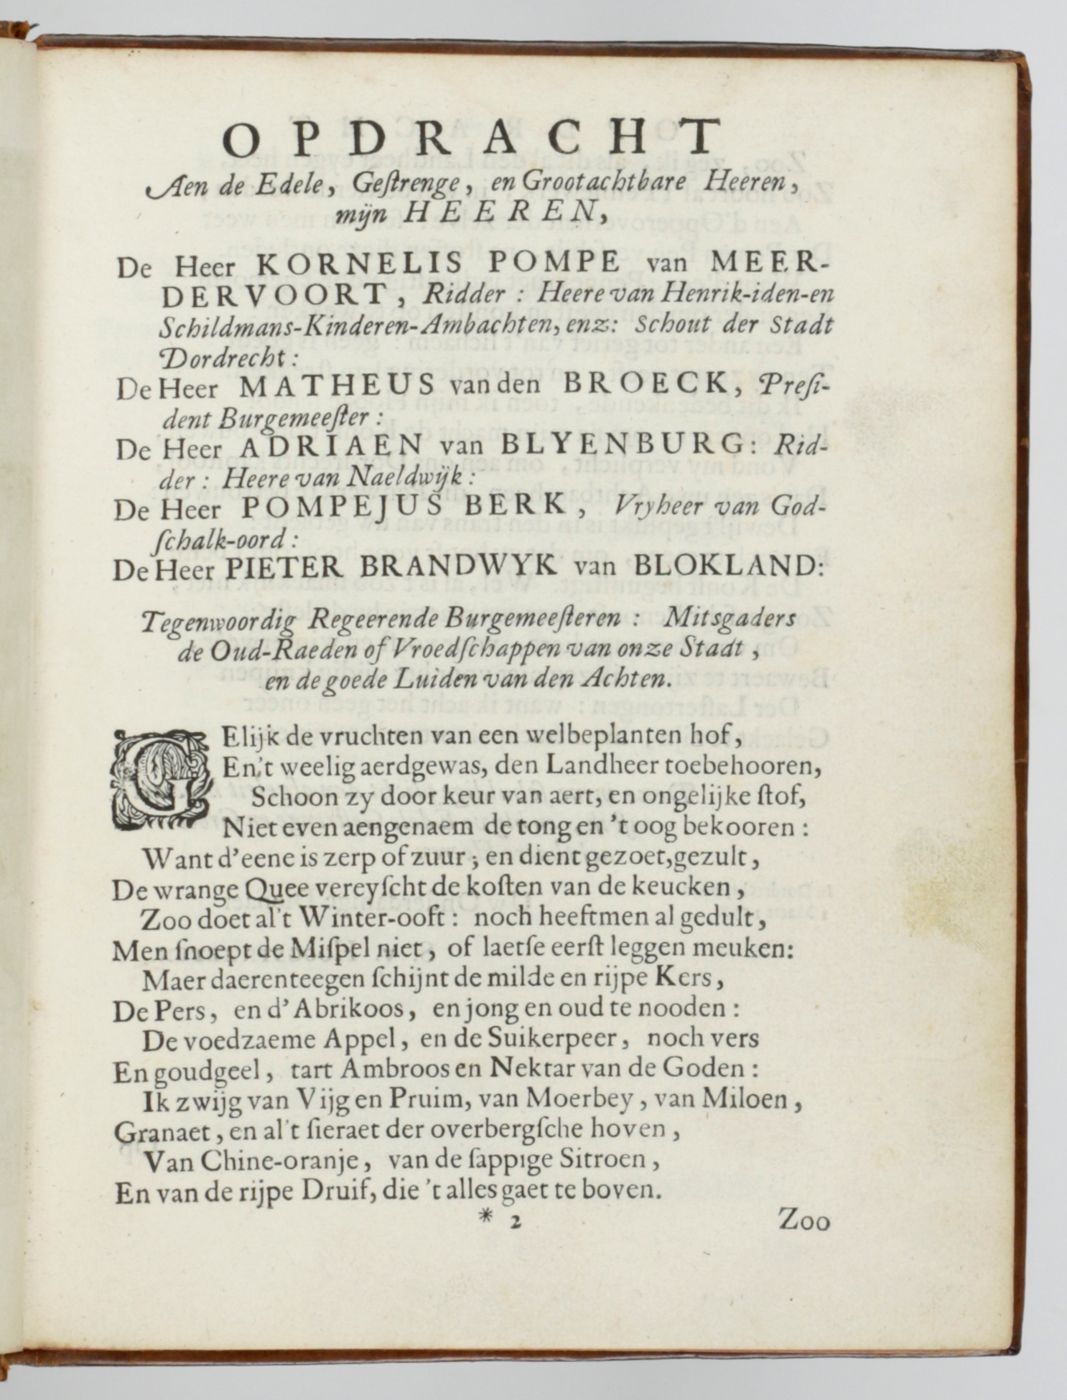 OPDRACHT
Aen de Edele, Geſtrenge, en Grootachtbare Heeren,
mijn HEEREN,
De Heer KORNELIS POMPE van MEER-
DERVOORT, Ridder : Heere van Henrik-iden-en
Schildmans-Kinderen-Ambachten, enz: Schout der Stadt
Dordrecht :
De Heer MATHEUS van den BROECK, Preſi-
dent Burgemeeſter :
De Heer ADRIAEN van BLYENBURG: Rid-
der : Heere van Naeldwijk :
De Heer POMPEJUS BERK, Vryheer van God-
ſchalk-oord :
De Heer PIETER BRANDWYK van BLOKLAND:
Tegenwoordig Regeerende Burgemeeſteren : Mitsgaders
de Oud-Raeden of Vroedſchappen van onze Stadt,
en de goede Luiden van den Achten.
GElijk de vruchten van een welbeplanten hof,
En't weelig aerdgewas, den Landheer toebehooren,
Schoon zy door keur van aert, en ongelijke ſtof,
Niet even aengenaem de tong en 't oog bekooren :
Want d'eene is zerp of zuur; en dient gezoet, gezult,
De wrange Quee vereyſcht de koſten van de keucken,
Zoo doet al't Winter-ooft : noch heeftmen al gedult,
Men ſnoept de Miſpel niet, of laetſe eerſt leggen meuken:
Maer daerenteegen ſchijnt de milde en rijpe Kers,
De Pers, en d' Abrikoos, en jong en oud te nooden :
De voedzaeme Appel, en de Suikerpeer, noch vers
En goudgeel, tart Ambroos en Nektar van de Goden :
Ik zwijg van Vijg en Pruim, van Moerbey, van Miloen,
Granaet, en al't ſieraet der overbergſche hoven,
Van Chine-oranje, van de ſappige Sitroen,
En van de rijpe Druif, die 't alles gaet te boven.
* 2 Zoo